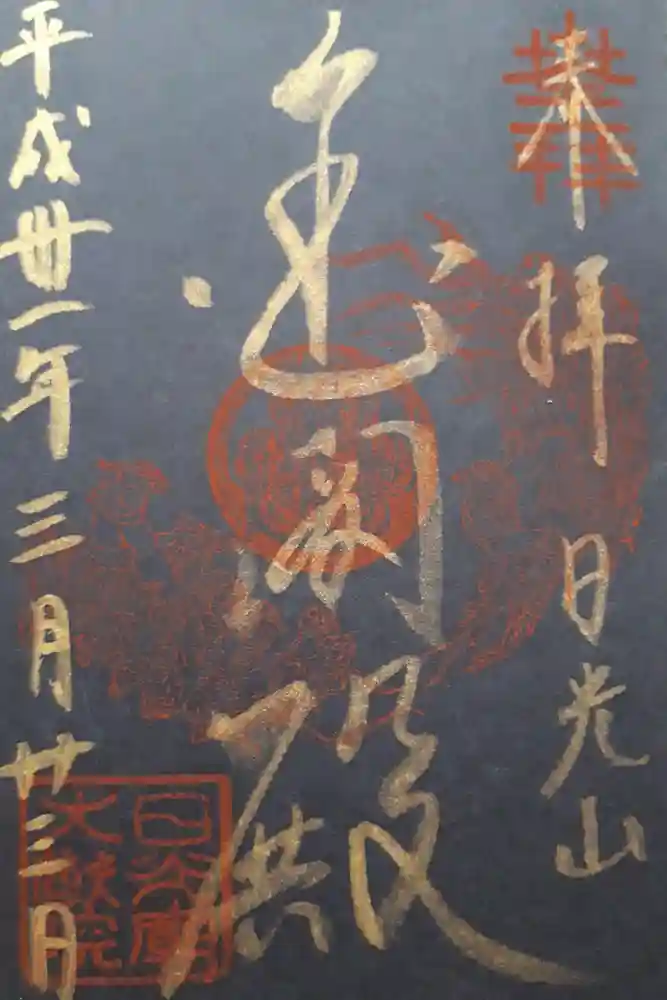 奉拝 日光山
殿
平成卅一年三月廿三日
日光廟
大猷院